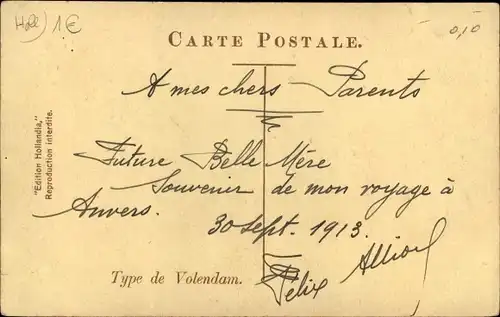 Holl) 1€
0,10
CARTE POSTALE.
A mes chers Parents
Future Belle Mère
Souvenir de mon voyage à
Anvers.
30 Sept. 1913.
Félix
Type de Volendam.
"Edition Hollandia,"
Reproduction interdite.